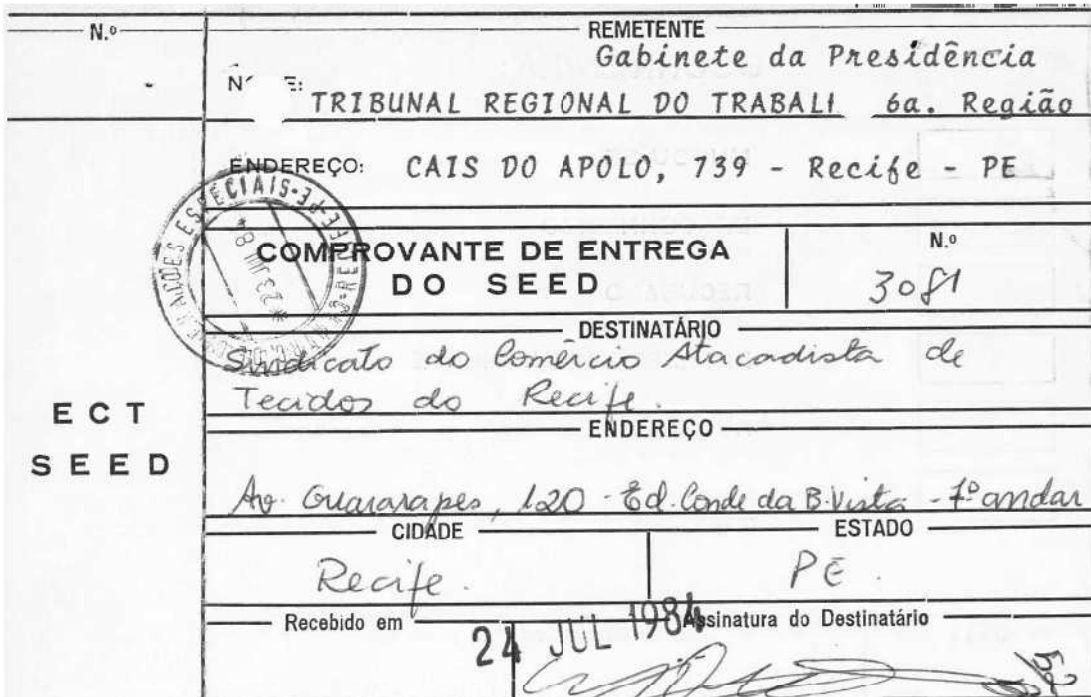 N.º
REMETENTE
Gabinete da Presidência
TRIBUNAL REGIONAL DO TRABAL 6a. Região
ENDEREÇO: CAIS DO APOLO, 739 - Recife - PE
COMPROVANTE DE ENTREGA
DO SEED
N.º
3081
DESTINATÁRIO
Sindicato do Comércio Atacadista de
Tecidos do Recife.
ECT
SEED
ENDEREÇO
Av. Guararapes, 120 - Ed. Conde da B. Vista - 7º andar
CIDADE
ESTADO
Recife.
PE.
Recebido em
24 JUL 1984
Assinatura do Destinatário